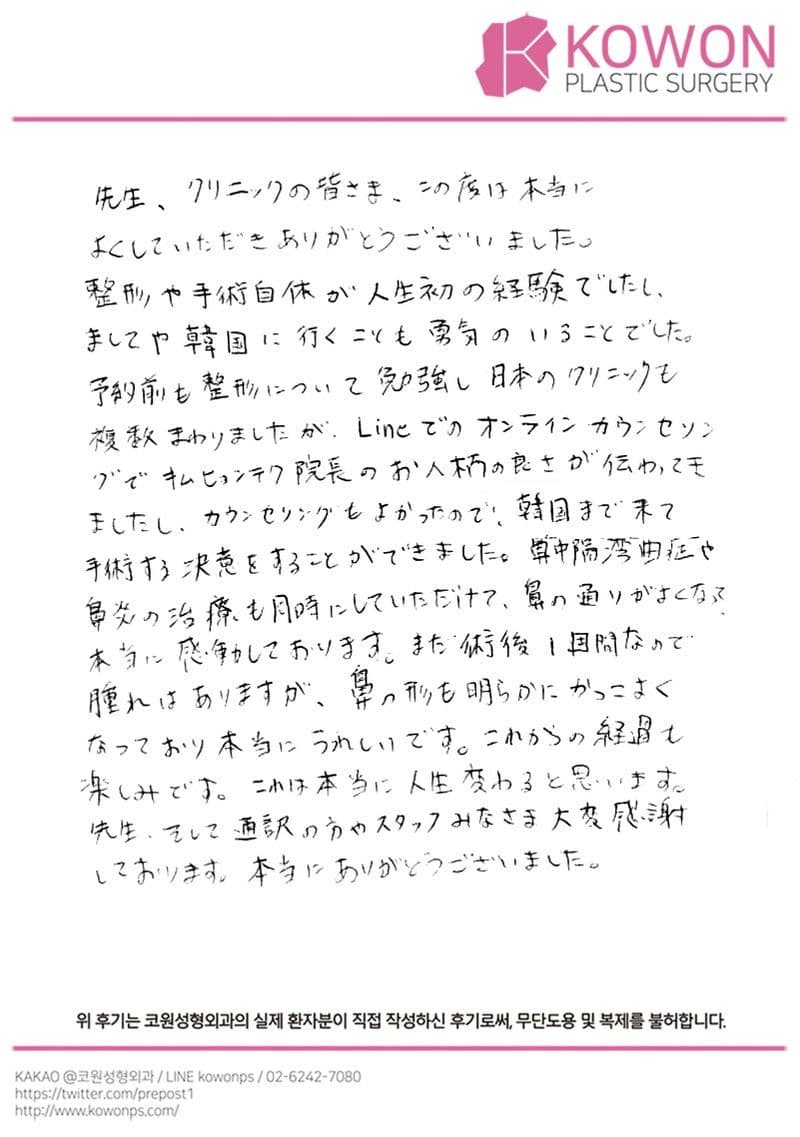 KOWON
PLASTIC SURGERY
先生、クリニックの皆さま、この度は本当に
よくしていただきありがとうございました。
整形や手術自体が人生初の経験でしたし、
ましてや韓国に行くことも勇気のいることでした。
予約前も整形について勉強し日本のクリニックも
複数まわりましたが、Lineでのオンラインカウンセリン
グでキムヒョンテク院長のお人柄の良さが伝わってき
ましたし、カウンセリングもよかったので、韓国まで来て
手術する決意をすることができました。鼻中隔湾曲症や
鼻炎の治療も同時にしていただけて、鼻の通りがよくなって
本当に感動しております。まだ術後1週間なので
腫れはありますが、鼻の形も明らかにかっこよく
なっており本当にうれしいです。これからの経過も
楽しみです。これは本当に人生変わると思います。
先生、そして通訳の方やスタッフみなさま大変感謝
しております。本当にありがとうございました。
위 후기는 코원성형외과의 실제 환자분이 직접 작성하신 후기로써, 무단도용 및 복제를 불허합니다.
KAKAO @코원성형외과 / LINE kowonps / 02-6242-7080
https://twitter.com/prepost1
http://www.kowonps.com/